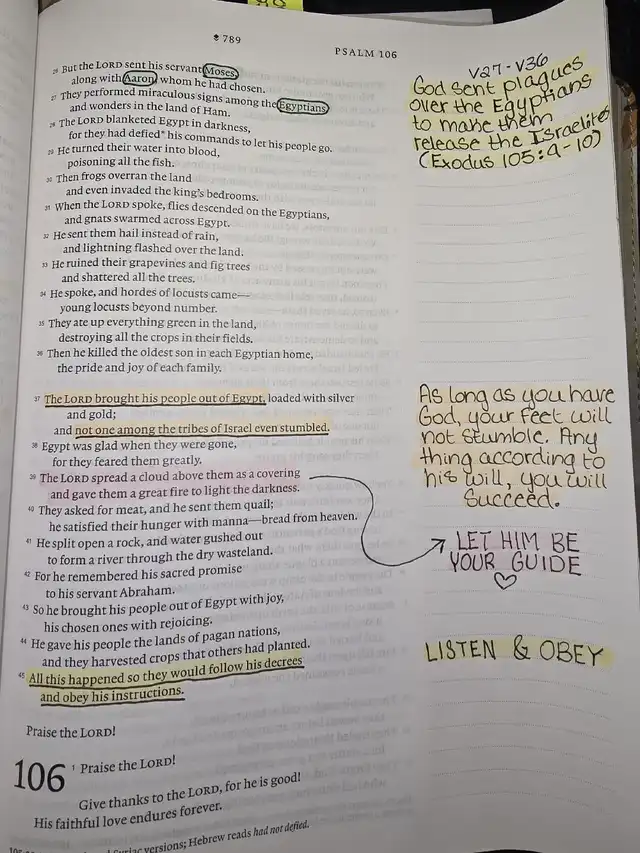 789
PSALM 106
26 But the LORD sent his servant Moses,
along with Aaron, whom he had chosen.
27 They performed miraculous signs among the Egyptians,
and wonders in the land of Ham.
28 The LORD blanketed Egypt in darkness,
for they had defied* his commands to let his people go.
29 He turned their water into blood,
poisoning all the fish.
30 Then frogs overran the land
and even invaded the king's bedrooms.
31 When the LORD spoke, flies descended on the Egyptians,
and gnats swarmed across Egypt.
32 He sent them hail instead of rain,
and lightning flashed over the land.
33 He ruined their grapevines and fig trees
and shattered all the trees.
34 He spoke, and hordes of locusts came—
young locusts beyond number.
35 They ate up everything green in the land,
destroying all the crops in their fields.
36 Then he killed the oldest son in each Egyptian home,
the pride and joy of each family.
37 The LORD brought his people out of Egypt, loaded with silver
and gold;
and not one among the tribes of Israel even stumbled.
38 Egypt was glad when they were gone,
for they feared them greatly.
39 The LORD spread a cloud above them as a covering
and gave them a great fire to light the darkness.
40 They asked for meat, and he sent them quail;
he satisfied their hunger with manna—bread from heaven.
41 He split open a rock, and water gushed out
to form a river through the dry wasteland.
42 For he remembered his sacred promise
to his servant Abraham.
43 So he brought his people out of Egypt with joy,
his chosen ones with rejoicing.
44 He gave his people the lands of pagan nations,
and they harvested crops that others had planted.
45 All this happened so they would follow his decrees
and obey his instructions.
Praise the LORD!
106 1 Praise the LORD!
Give thanks to the LORD, for he is good!
His faithful love endures forever.
versions; Hebrew reads had not defied.
V27-V36
God sent plagues
over the Egyptians
to make them
release the Israelites
(Exodus 105:9-10)
As long as you have
God, your feet will
not stumble. Any
thing according to
his will, you will
succeed.
LET HIM BE
YOUR GUIDE
LISTEN & OBEY